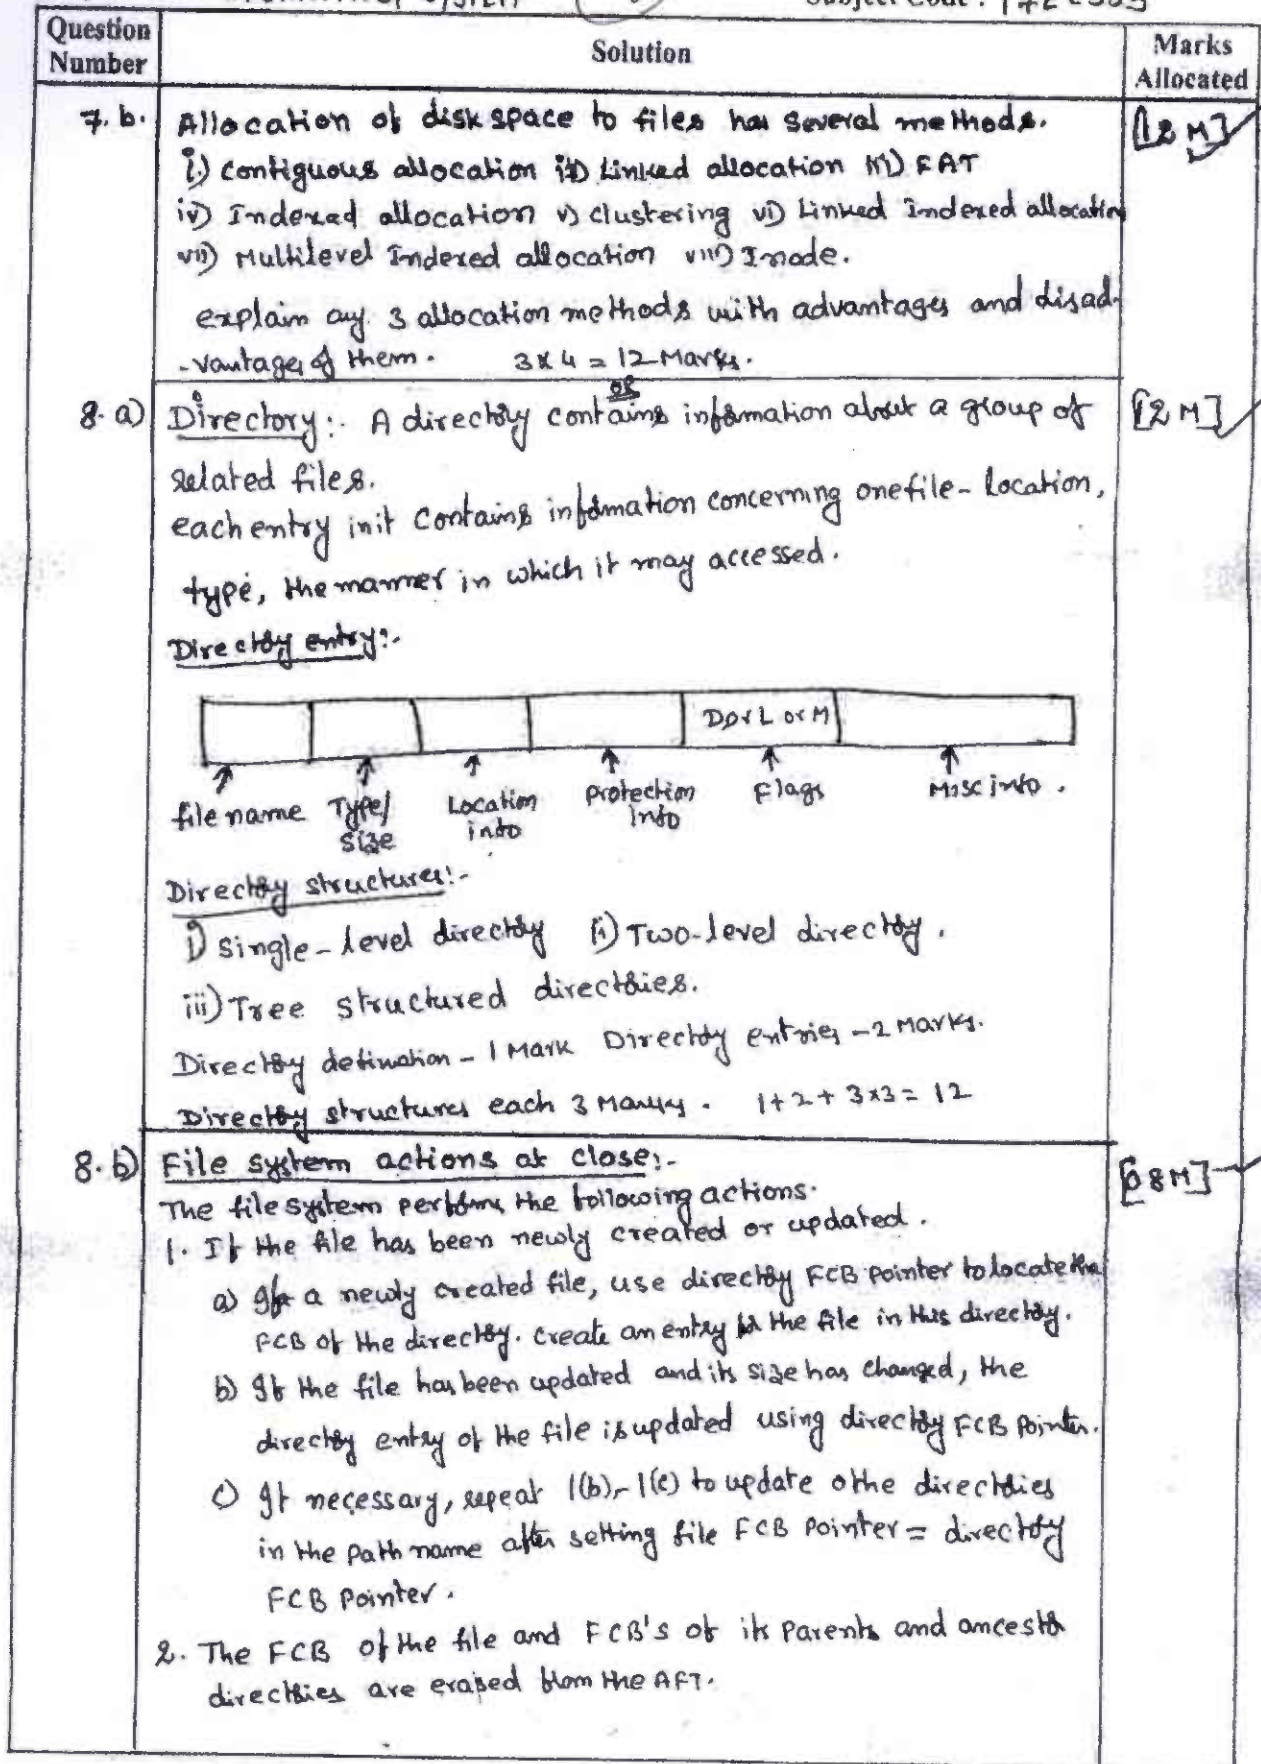 Question Number
Solution
Marks Allocated
7. b. Allocation of disk space to files has several methods. [12 M]
i) contiguous allocation ii) Linked allocation iii) FAT
iv) Indexed allocation v) clustering vi) Linked Indexed allocation
vii) Multilevel Indexed allocation viii) Inode.
explain any 3 allocation methods with advantages and disad-
-vantages of them. 3 x 4 = 12 Marks.
or
8. a) Directory:- A directory contains information about a group of [12 M]
related files.
each entry in it contains information concerning one file - Location,
type, the manner in which it may accessed.
Directory entry:-
D or L or M
file name Type/size Location info Protection info Flags Misc info.
Directory structures:-
i) Single-level directory ii) Two-level directory.
iii) Tree structured directories.
Directory defination - 1 Mark Directory entries - 2 Marks.
Directory structures each 3 Marks. 1+2+3x3 = 12
8. b) File system actions at close:- [08M]
The file system performs the following actions.
1. If the file has been newly created or updated.
a) If a newly created file, use directory FCB pointer to locate the
FCB of the directory. create an entry for the file in this directory.
b) If the file has been updated and its size has changed, the
directory entry of the file is updated using directory FCB Pointer.
c) If necessary, repeat 1(b)-1(c) to update othe directories
in the path name after setting file FCB Pointer = directory
FCB Pointer.
2. The FCB of the file and FCB's of its Parents and ancestor
directories are erased from the AFT.